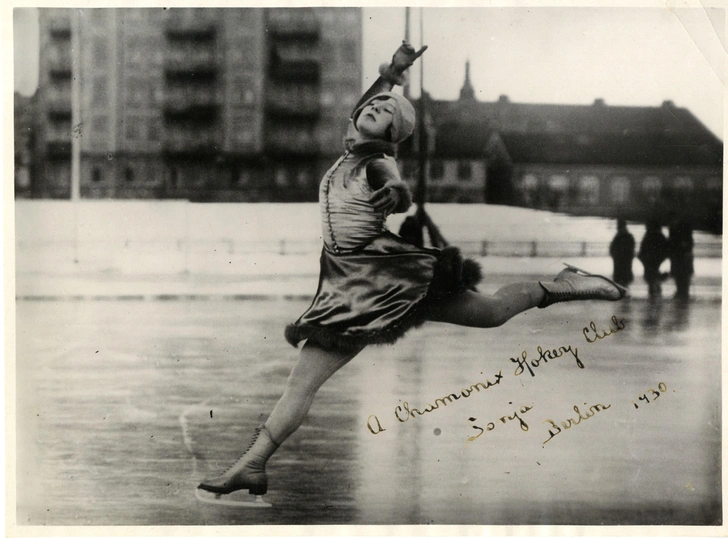 A Chamonix Hokey Club
Sonja
Berlin 1930